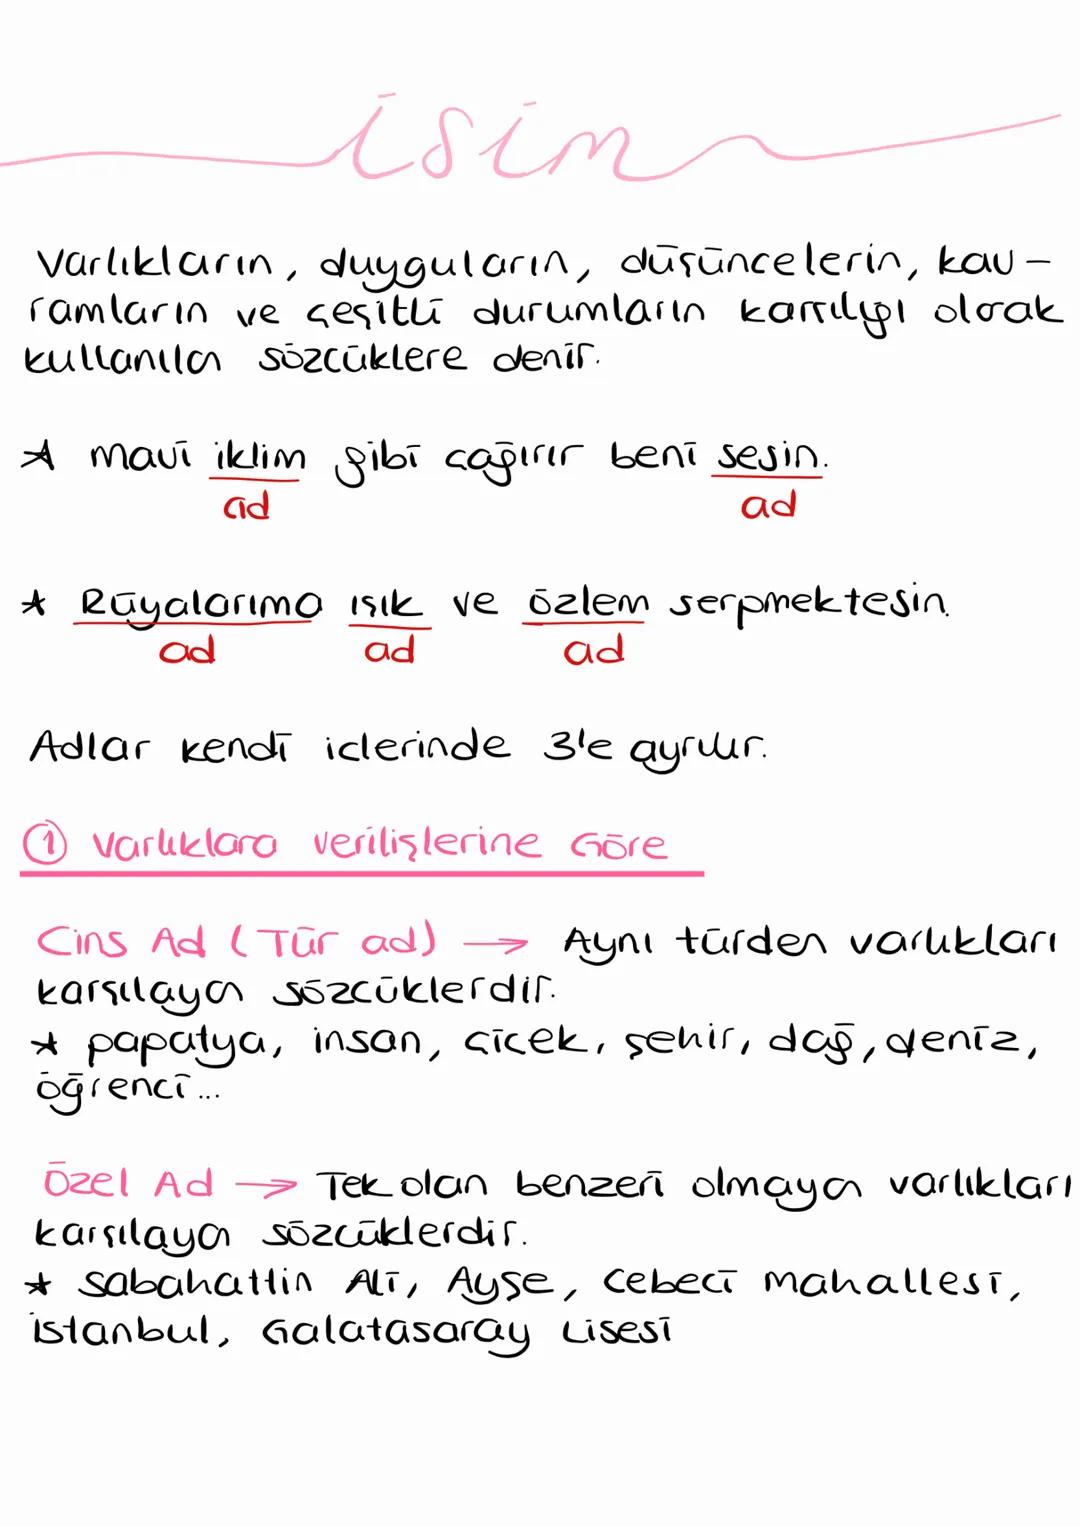 isim
Varlıkların, duyguların, düşüncelerin, kav-
ramların ve çeşitli durumların karşılığı olarak
kullanılan sözcüklere denir.
* mavi iklim gibi çağırır beni sesin.
ad ad
* Rüyalarıma ışık ve özlem serpmektesin.
ad ad ad
Adlar kendi iclerinde 3'e ayrılır.
① Varlıklara verilişlerine Göre
Cins Ad (Tür ad) → Aynı türden varlıkları
karşılayan sözcüklerdir.
* papatya, insan, çiçek, şehir, dağ, deniz,
öğrenci...
Özel Ad → Tek olan benzeri olmayan varlıkları
karşılayan sözcüklerdir.
* Sabahattin Ali, Ayşe, Cebeci mahallesi,
istanbul, Galatasaray Lisesi